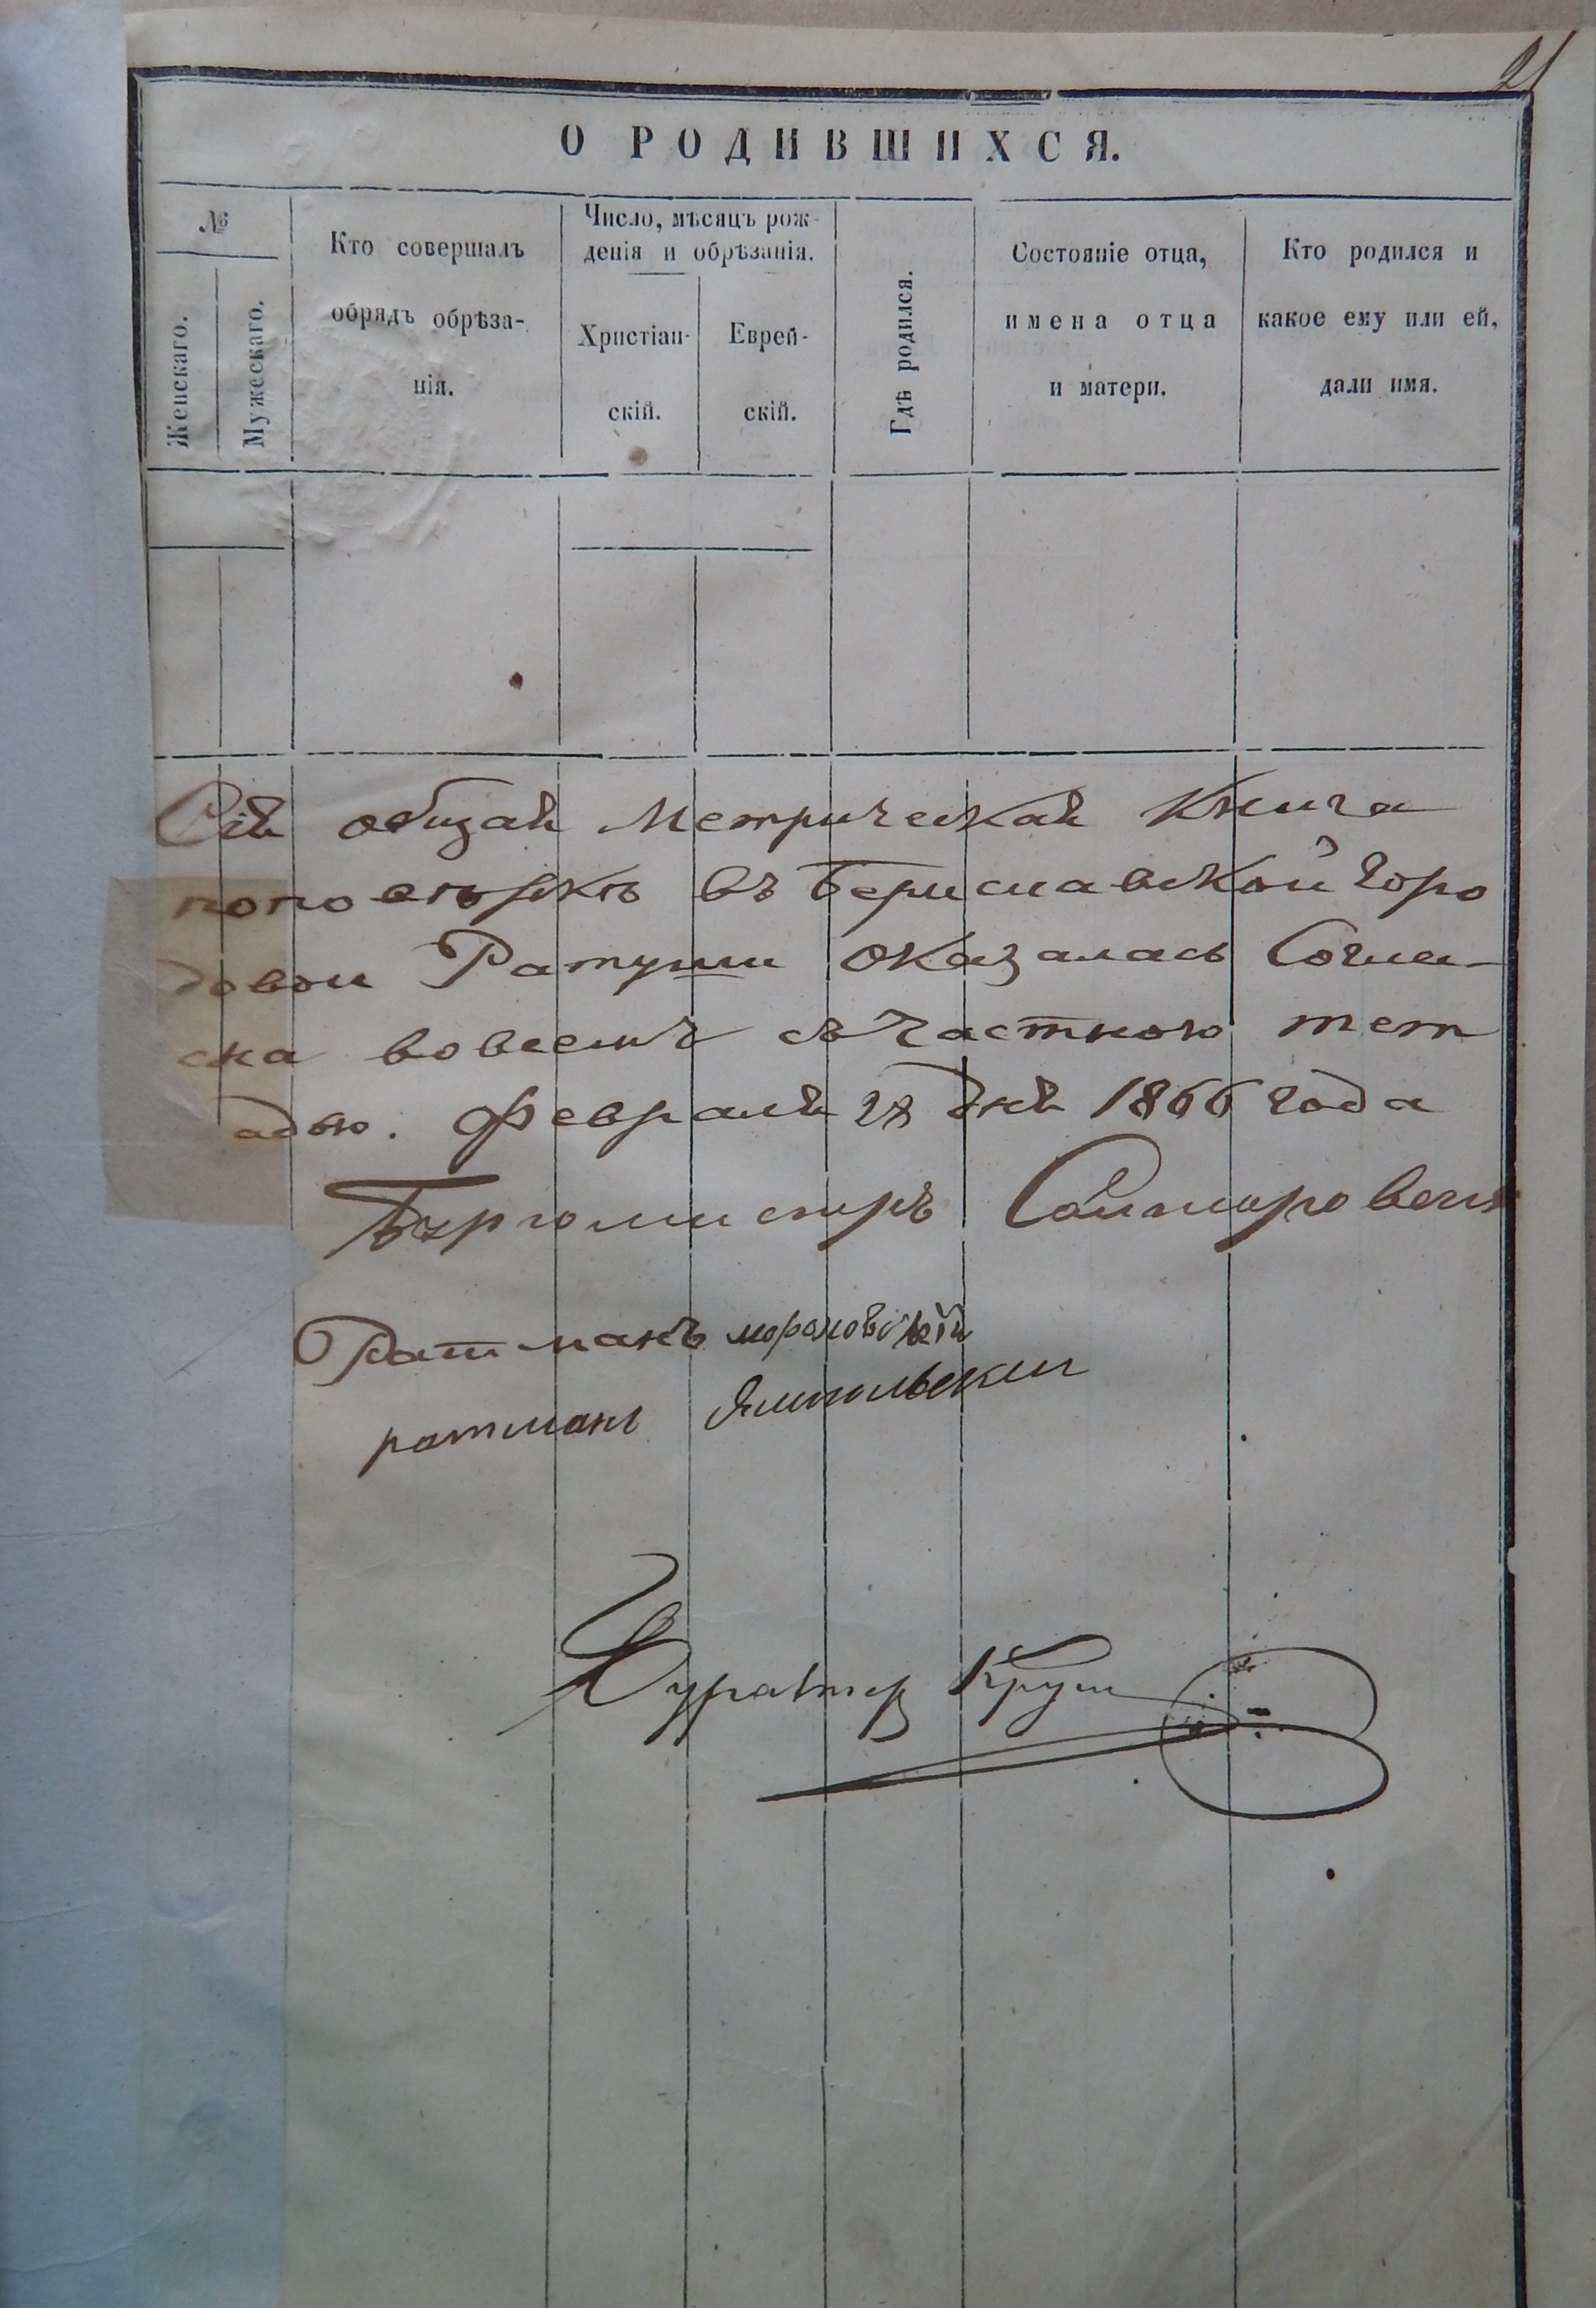 21
О РОДИВШИХСЯ.
№
Женскаго.
Мужескаго.
Кто совершалъ
обрядъ обрѣза-
нія.
Число, мѣсяцъ рож-
денія и обрѣзанія.
Христіан-
скій.
Еврей-
скій.
Гдѣ родился.
Состояніе отца,
имена отца
и матери.
Кто родился и
какое ему или ей,
дали имя.
Сія общая Метрическая Книга
поповѣркѣ въ Бериславской Горо
довой Ратуши оказалась Согла-
сна вовсемъ съ частною тет
адью. Февраля 28 дня 1866 года
Бургомистръ
Ратманъ
ратманъ Ямпольскии